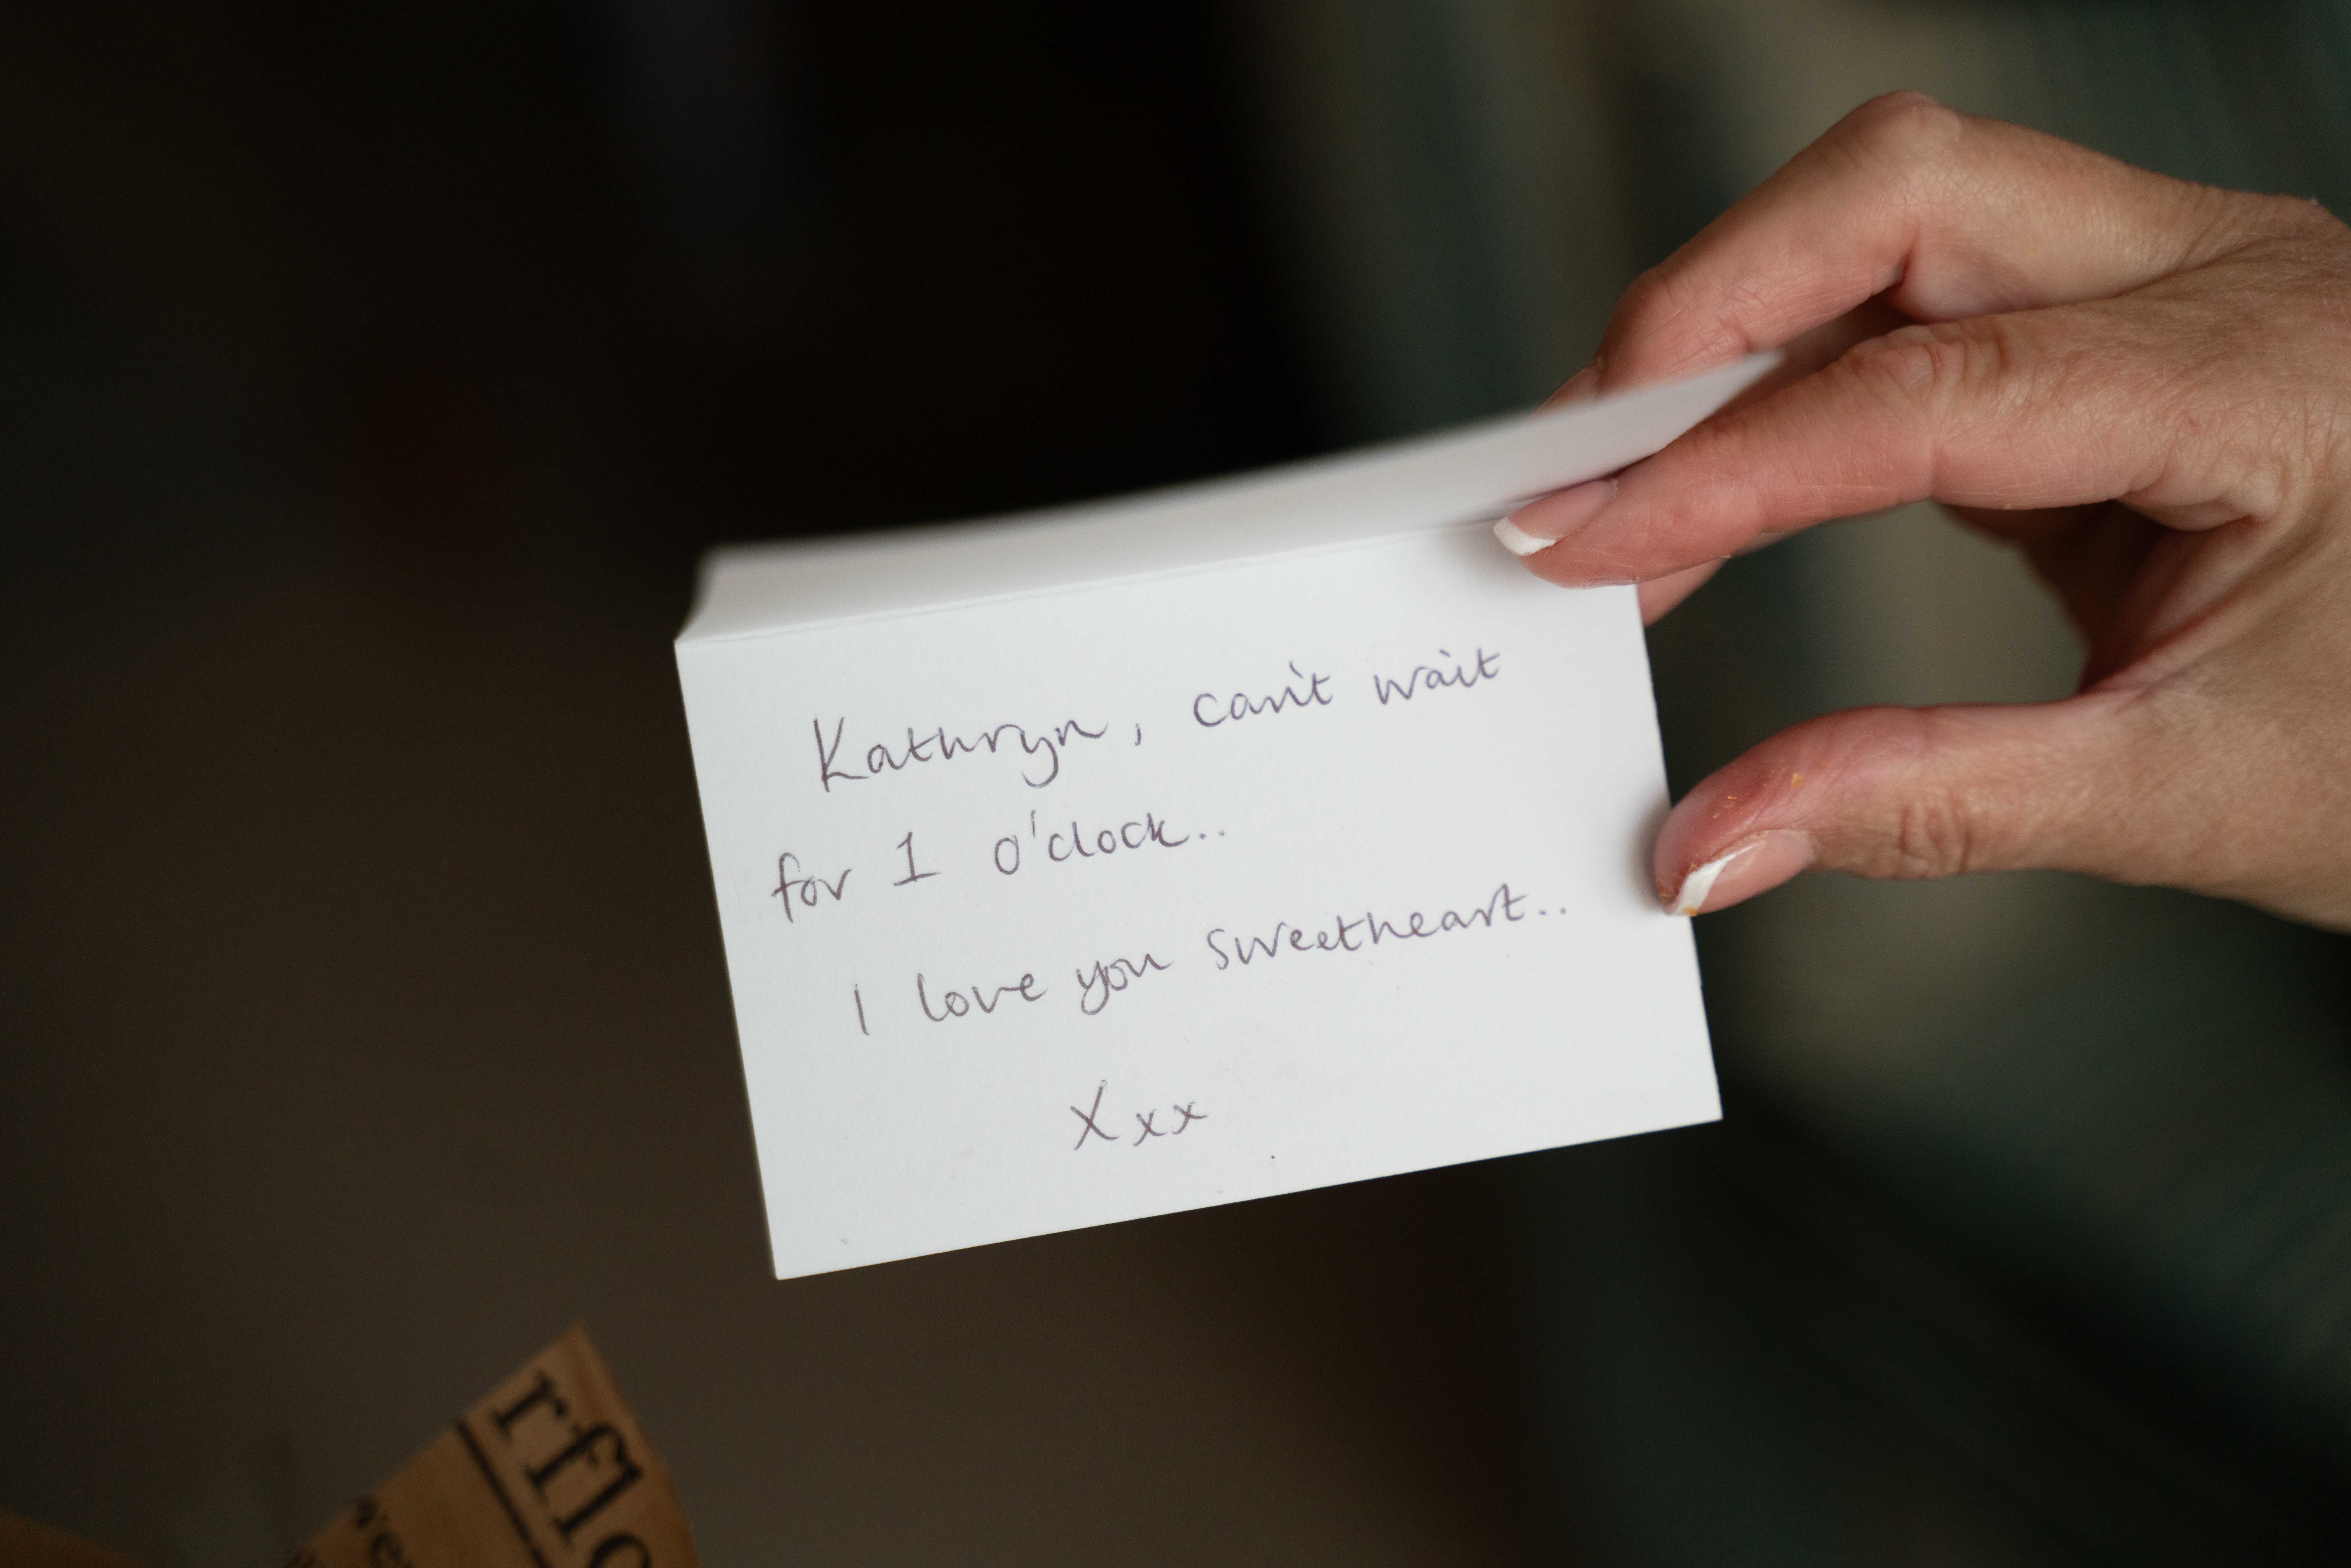 Kathryn, can't wait
for 1 o'clock..
I love you sweetheart..
Xxx